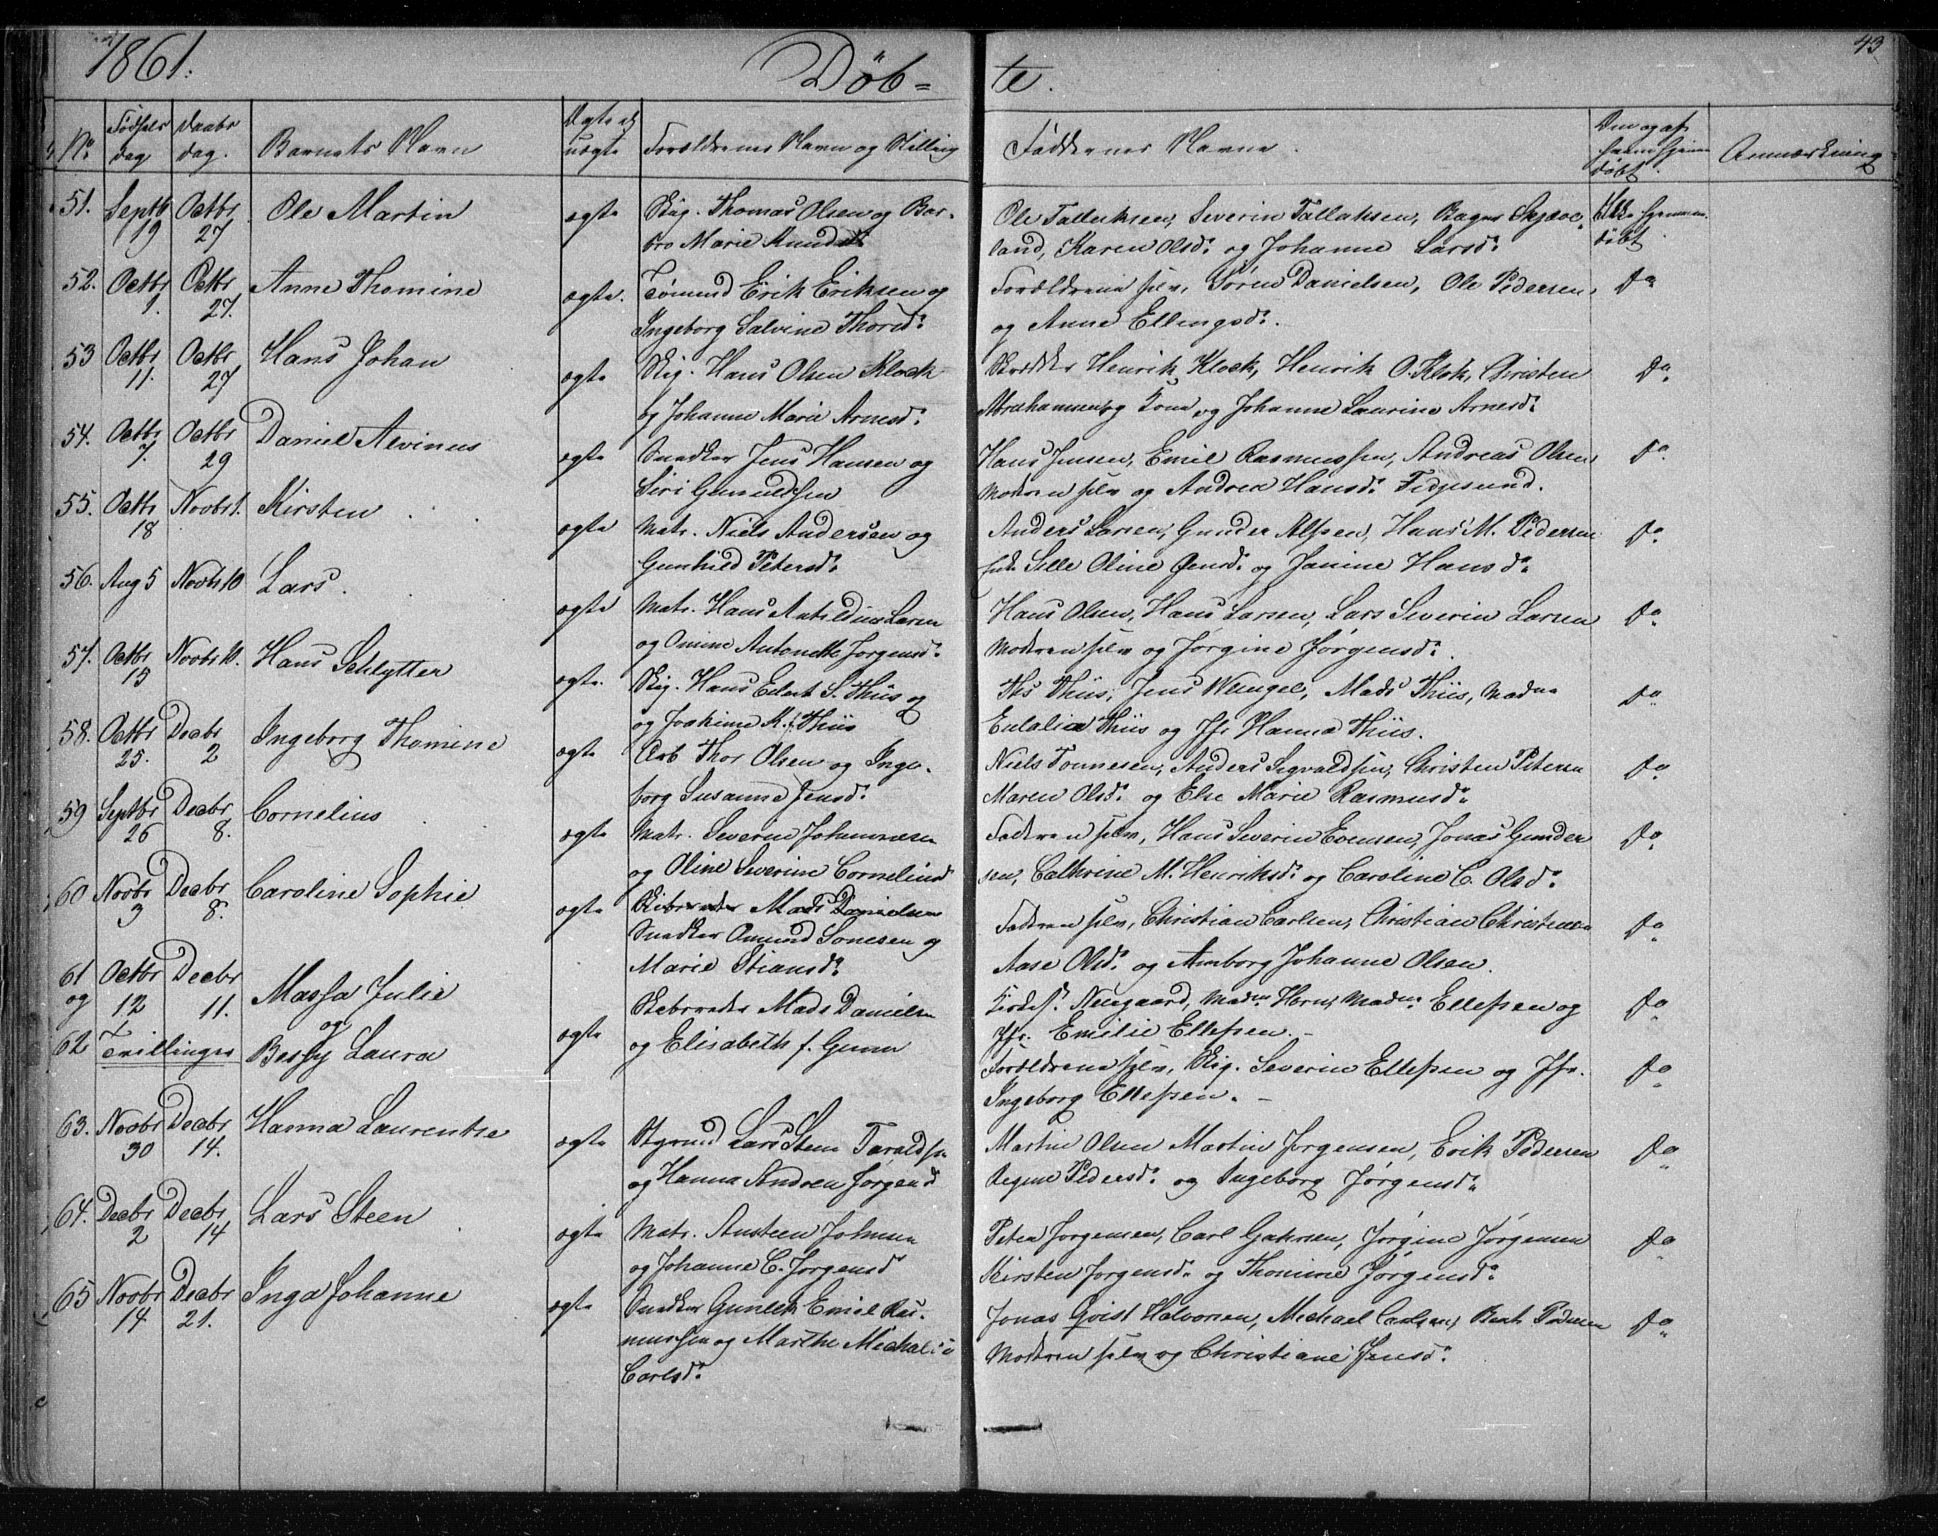 1861. Døb= te. 43
No Fødsels dag Daabs dag. Barnets Navn Ægte el uægte Forældrenes Navn og Stilling Faddernes Navne. Om og af hvem hjemmedøbt. Anmærkning
51. Septb 19 Octbr 27 Ole Martin ægte Skig. Thomas Olsen og Bar-
bro Marie Knudsd.
Ole Tallaksen, Severin Tallaksen,
land, Karen Olsd. og Johanne Larsd.
52. Octbr 1. Octbr 27. Anne Thomine ægte. Tømmd Erik Eriksen og
Ingeborg Salvine Thorsd.
Forældrene selv, Søren Danielsen, Ole Pedersen, Do
og Anne Ellingsd.
53 Octbr 11. Octbr 27 Hans Johan ægte Skig. Hans Olsen Klock
og Johanne Marie Arnesd.
Henrik Klock, Henrik O. Klok, Christen Do
Abrahamsen og Kone, og Johanne Laurine Arnesd.
54. Octbr 7. Octbr 29 Daniel Alvinus ægte Snedker Jens Hansen og
Siri Gunuldsen
Hans Jensen, Emil Rasmussen, Andreas Olsen, Do
Moderen selv og Andrea Hansd.
55. Octbr 18 Novbr 1. Kirsten ægte Matr. Niels Andersen og
Gunhild Petersd.
Anders Larsen, Gunder Alfsen, Hans M. Pedersen Do
Sille Oline Jensd. og Janine Hansd.
56. Aug 5 Novbr 10 Lars ægte Matr. Hans Larsen
og Omine Antonette Jørgensd.
Hans Olsen, Hans Larsen, Lars Severin Larsen Do
Moderen selv og Jørgine Jørgensd.
57. Octbr 15 Novbr 10. Hans Schlytter ægte. Skig. Hans Edert S. Thiis og
og Joakime M. f. Thiis
Ths Thiis, Jens Wengel, Mads Thiis, Madme Do
Eulalia Thiis og Jfr Hanna Thiis.
58. Octbr 25. Decbr 2 Ingeborg Thomine ægte Arb Thor Olsen og Inge-
borg Susanne Jensd.
Niels Tonnesen, Anders Sigvaldsen, Christen Petersen Do
Maren Olsd. og Else Marie Rasmusd.
59 Septbr 26 Decbr 8. Cornelius ægte Matr. Severin Johannesen
og Oline Severine Corneliusd
Faderen selv, Hans Severin Evensen, Jonas Gunder Do
sen, Cathrine M. Henriksd. og Caroline C. Olsd.
60 Novbr 3 Decbr 8. Caroline Sophie ægte Mads Danielsen
Snedker Omund Sonesen og
Marie Stiansd.
Faderen selv, Christian Carlsen, Christian Christensen Do
Aase Olsd. og Amborg Johanne Olsen.
61 og 62 Octbr 12 Decbr 11. Massa Julie
og
Tvillinger Bessy Laura ægte Mads Danielsen
og Elisabeth f. Gunn
Neugaard, Madm. Horn, Madm. Ellefsen og Do
Jfr. Emilie Ellefsen.
Forældrene selv, Skig. Severin Ellefsen og Jfr. Do
Ingeborg Ellefsen.
63. Novbr 30 Decbr 14. Hanna Laurentze ægte Styrmd Lars Steen Taraldsen
og Hanna Andrea Jørgensd
Martin Olsen Martin Jørgensen, Erik Pedersen Do
Regine Pedersd. og Ingeborg Jørgensd.
64. Decbr 2 Decbr 14 Lars Steen ægte Matr. Austeen Johnsen
og Johanne C. Jørgensd
Peter Jørgensen, Carl Jørgine Jørgensen Do
Kirsten Jørgensd. og Thomine Jørgensd.
65 Novbr 14 Decbr 21. Inga Johanne ægte Snedker Gunleik Emil Ras-
mussen og Marthe Michali
Carlsd.
Jonas Qvist Halvorsen, Michael Carlsen, Bent Pedersen Do
Moderen selv og Christiane Jensd.